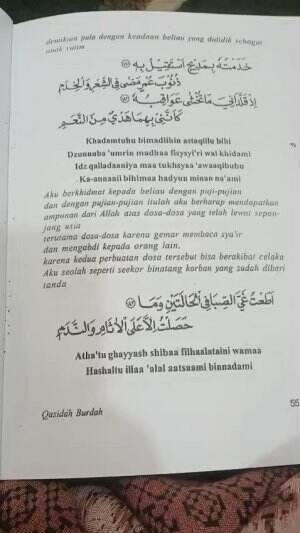 demikian pula dengan keadaan beliau yang dididik sebagai
anak yatim
خَدَمْتُهُ بِمَدِيْحٍ اَسْتَقِيْلُ بِهِ
ذُنُوْبَ عُمْرٍ مَضٰى فِى الشِّعْرِ وَالْخِدَمِ
اِذْ قَلَّدَانِيَ مَا تُخْشٰى عَوَاقِبُهُ
كَاَنَّنِيْ بِهِمَا هَدْيٌ مِنَ النَّعَمِ
Khadamtuhu bimadiihin astaqiilu bihi
Dzunuuba 'umrin madhaa fisysyi'ri wal khidami
Idz qalladaaniya maa tukhsyaa 'awaaqibuhu
Ka-annanii bihimaa hadyun minan na'ami
Aku berkhidmat kepada beliau dengan puji-pujian
dan dengan pujian-pujian itulah aku berharap mendapatkan
ampunan dari Allah atas dosa-dosa yang telah lewat sepan-
jang usia
terutama dosa-dosa karena gemar membaca sya'ir
dan mengabdi kepada orang lain,
karena kedua perbuatan dosa tersebut bisa berakibat celaka
Aku seolah seperti seekor binatang korban yang sudah diberi
tanda
اَطَعْتُ غَيَّ الصِّبَا فِى الْحَالَتَيْنِ وَمَا
حَصَلْتُ اِلَّا عَلَى الْاٰثَامِ وَالنَّدَمِ
Atha'tu ghayyash shibaa filhaalataini wamaa
Hashaltu illaa 'alal aatsaami binnadami
Qasidah Burdah
55